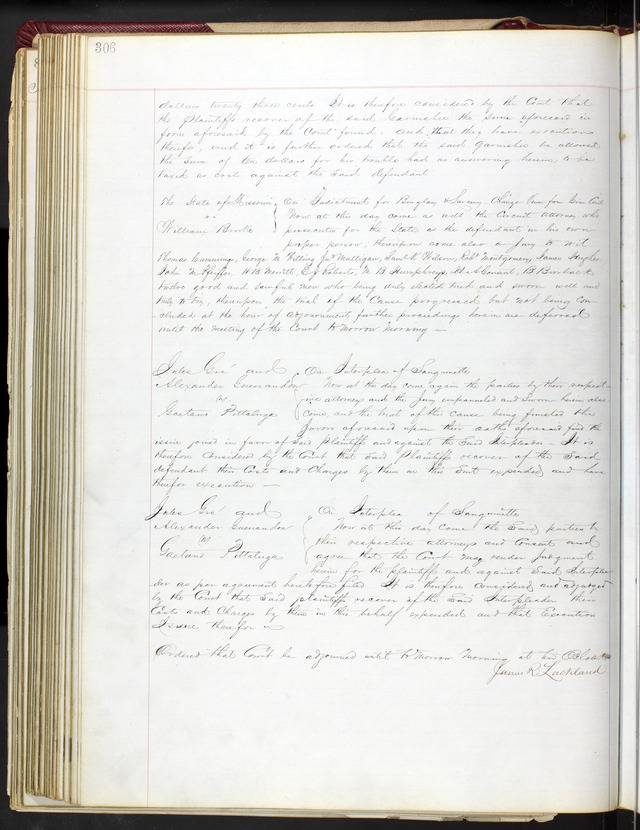 306
dollars twenty three cents It is therefore considered by the Court that
the Plaintiffs recover of the said Garnishee the sum aforesaid in
form aforesaid by the Court found, and that they have execution
therefor, and it is further ordered that the said garnishee be allowed
the sum of ten dollars for his trouble had in answering herein to be
taxed as costs against the said defendant
The State of Missouri
vs
William
On Indictment for Burglary & Larceny
Now at this day come as well the Circuit Attorney who
prosecutes for the State as the defendant in his own
proper person, thereupon come also a Jury to wit
Thomas Cummings, George W Mulligan, Saml K Wilson, Robt Montgomery, James
John M Pfeffer, H B Merritt, Roberts, W B Humphreys,
twelve good and lawful men who being duly elected tried and sworn well and
truly to try, thereupon the trial of the Cause progressed but not being con-
cluded at the hour of adjournment further proceedings herein are deferred
until the meeting of the Court to Morrow Morning —
Jules and
Alexander
vs
Gaetano Pittaluga
On Interplea of Sanguinette
Now at the day come again the parties by their respect-
ive attorneys and the Jury impannelled and sworn herein also
come, and the trial of the cause being finished the
Jurors aforesaid upon their oaths aforesaid find the
issue joined in favor of Said Plaintiffs and against the Said Interpleader — It is
therefore Considered by the Court that Said Plaintiffs recover of the Said
defendant their Costs and Charges by them in this Suit expended and have
therefor execution —
Jules and
Alexander
vs
Gaetano Pittaluga
On Interplea of Sanguinette
Now at this day come the Said parties by
their respective attorneys and Consent and
agree that the Court may render Judgment
herein for the plaintiffs and against Said Interplea-
der as per agreement heretofore filed It is therefore considered and adjudged
by the Court that Said plaintiffs recover of the Said Interpleader their
Costs and Charges by them in this behalf expended and that Execution
Issue therefor
Ordered that Court be adjourned until to Morrow Morning at ten O'Clock
James R Lackland